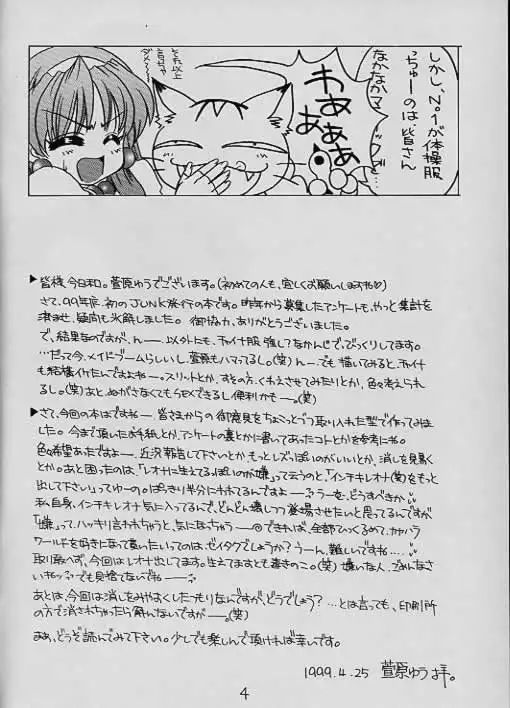 しかし、No.1が体操服
っちゅーのは、皆さん
なかなかマニアックっ
わあぁぁ
あぁ
それ以上
言っちゃ
ダメ〜
▶皆様、今日和。萓原ゆうでございます。(初めての人も、宜しくお願いしますね♡)
さて、99年度、初のJUNK発行の本です。昨年から募集したアンケートも、やっと集計を
済ませ、疑問も氷解しました。御協力、ありがとうございました。
で、結果なのですが、んー、以外にも、チャイナ服強し?なかんじで、びっくりしてます。
…だって今、メイドブームらしいし、萓原もハマってるし。(笑)んー、でも描いてみると、チャイナ
も結構イケたんですよねー。スリットとか、すその方、くわえさせてみたりとか、色々考えられ
るし。(笑)あと、ぬがさなくてもSEXできるし便利かもー。(笑)
▶さて、今回の本はですねー、皆さまからの御意見をちょこっとづつ取り入れた型で作ってみま
した。今まで頂いたお手紙とか、アンケートの裏とかに書いてあったコトとかを参考にね。
色々希望あったですよー、近況報告して下さいとか、もっとレズっぽいのがいいとか、消しを見易く
とか。あと困ったのは、「レオナに生えてるっぽいのが嫌」って云うのと、「インチキレオナ(笑)をもっと
出して下さい」ってゆーの。ぱっきり半分にわれてるんですよー。うーむ、どうすべきか
私自身、インチキレオナ気に入ってるんで、どんどん嬉しつつ登場させたいと思ってるんですが
「嫌」って、ハッキリ言われちゃうと、気になっちゃうー。できれば、全部ひっくるめて、カヤハラ
ワールドを好きになって貰いたいってのは、ゼイタクでしょうか?うーん、難しいですね…。
取り敢えず、今回はレオナ出してます。生えてますとも毒きのこ。(笑)嫌いな人、ごめんなさ
いねッ でも見捨てないでねー。
あとは、今回は消しをみやすくしたつもりなんですが、どうでしょう?…とは言っても、印刷所
の方で消されちゃったら解んないですがー。(笑)
まぁ、どうぞ読んでみて下さい。少しでも楽しんで頂ければ幸いです。
1999.4.25 萓原ゆう拝。
4